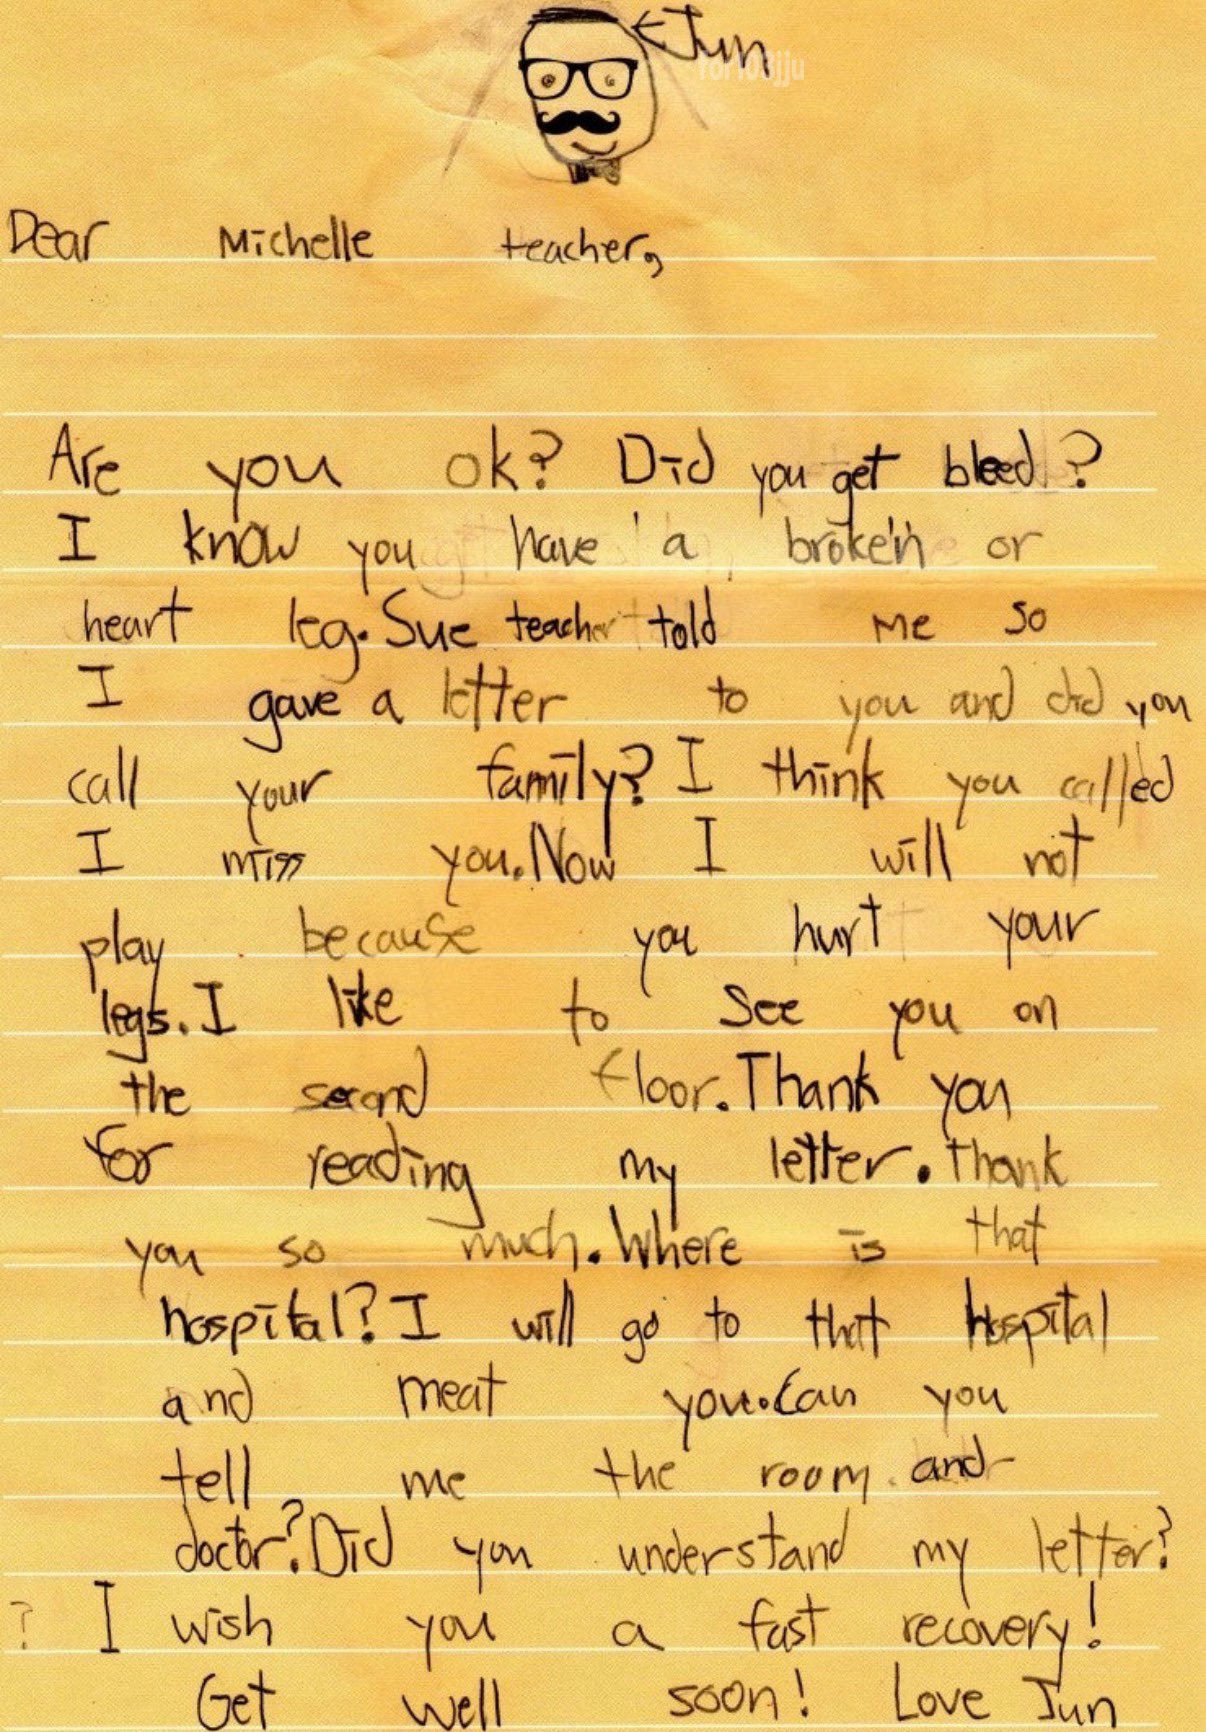 Jun
Dear Michelle teacher,
Are you ok? Did you get bleed?
I know you have a broken or
heart leg. Sue teacher told me so
I gave a letter to you and did you
call your family? I think you called
I miss you. Now I will not
play because you hurt your
legs. I like to see you on
the second floor. Thank you
for reading my letter. thank
you so much. Where is that
hospital? I will go to that hospital
and meat you. Can you
tell me the room and
doctor? Did you understand my letter?
? I wish you a fast recovery!
Get well soon! Love Jun